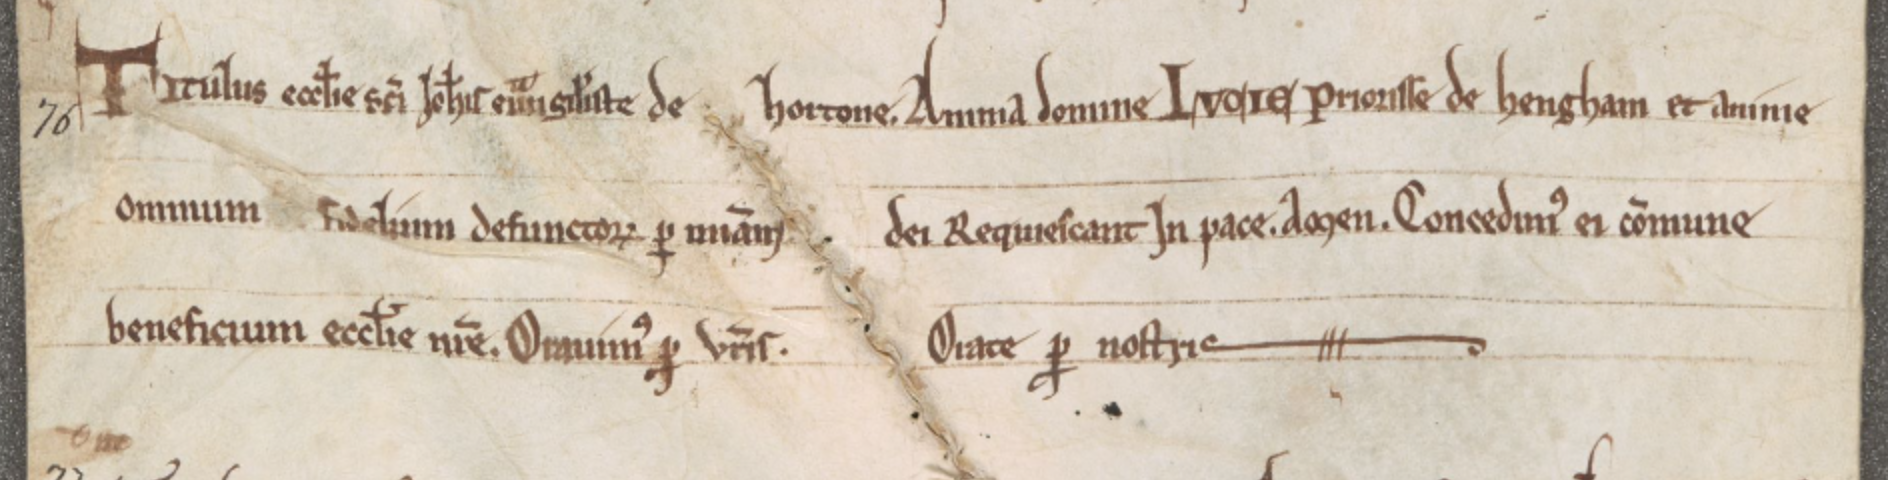 76 Titulus eccl̄ie sc̄i Joh̄is euu̅ngeliste de hortone. Anima domine LVCIE priorisse de hengham et anime
omnium fidelium defunctoꝝ ꝑ mīam dei Requiescant In pace. Amen. Concedimꝰ ei cōmune
beneficium eccl̄ie nr̄e. Orauimꝰ ꝓ vr̄is. Orate ꝓ nostris